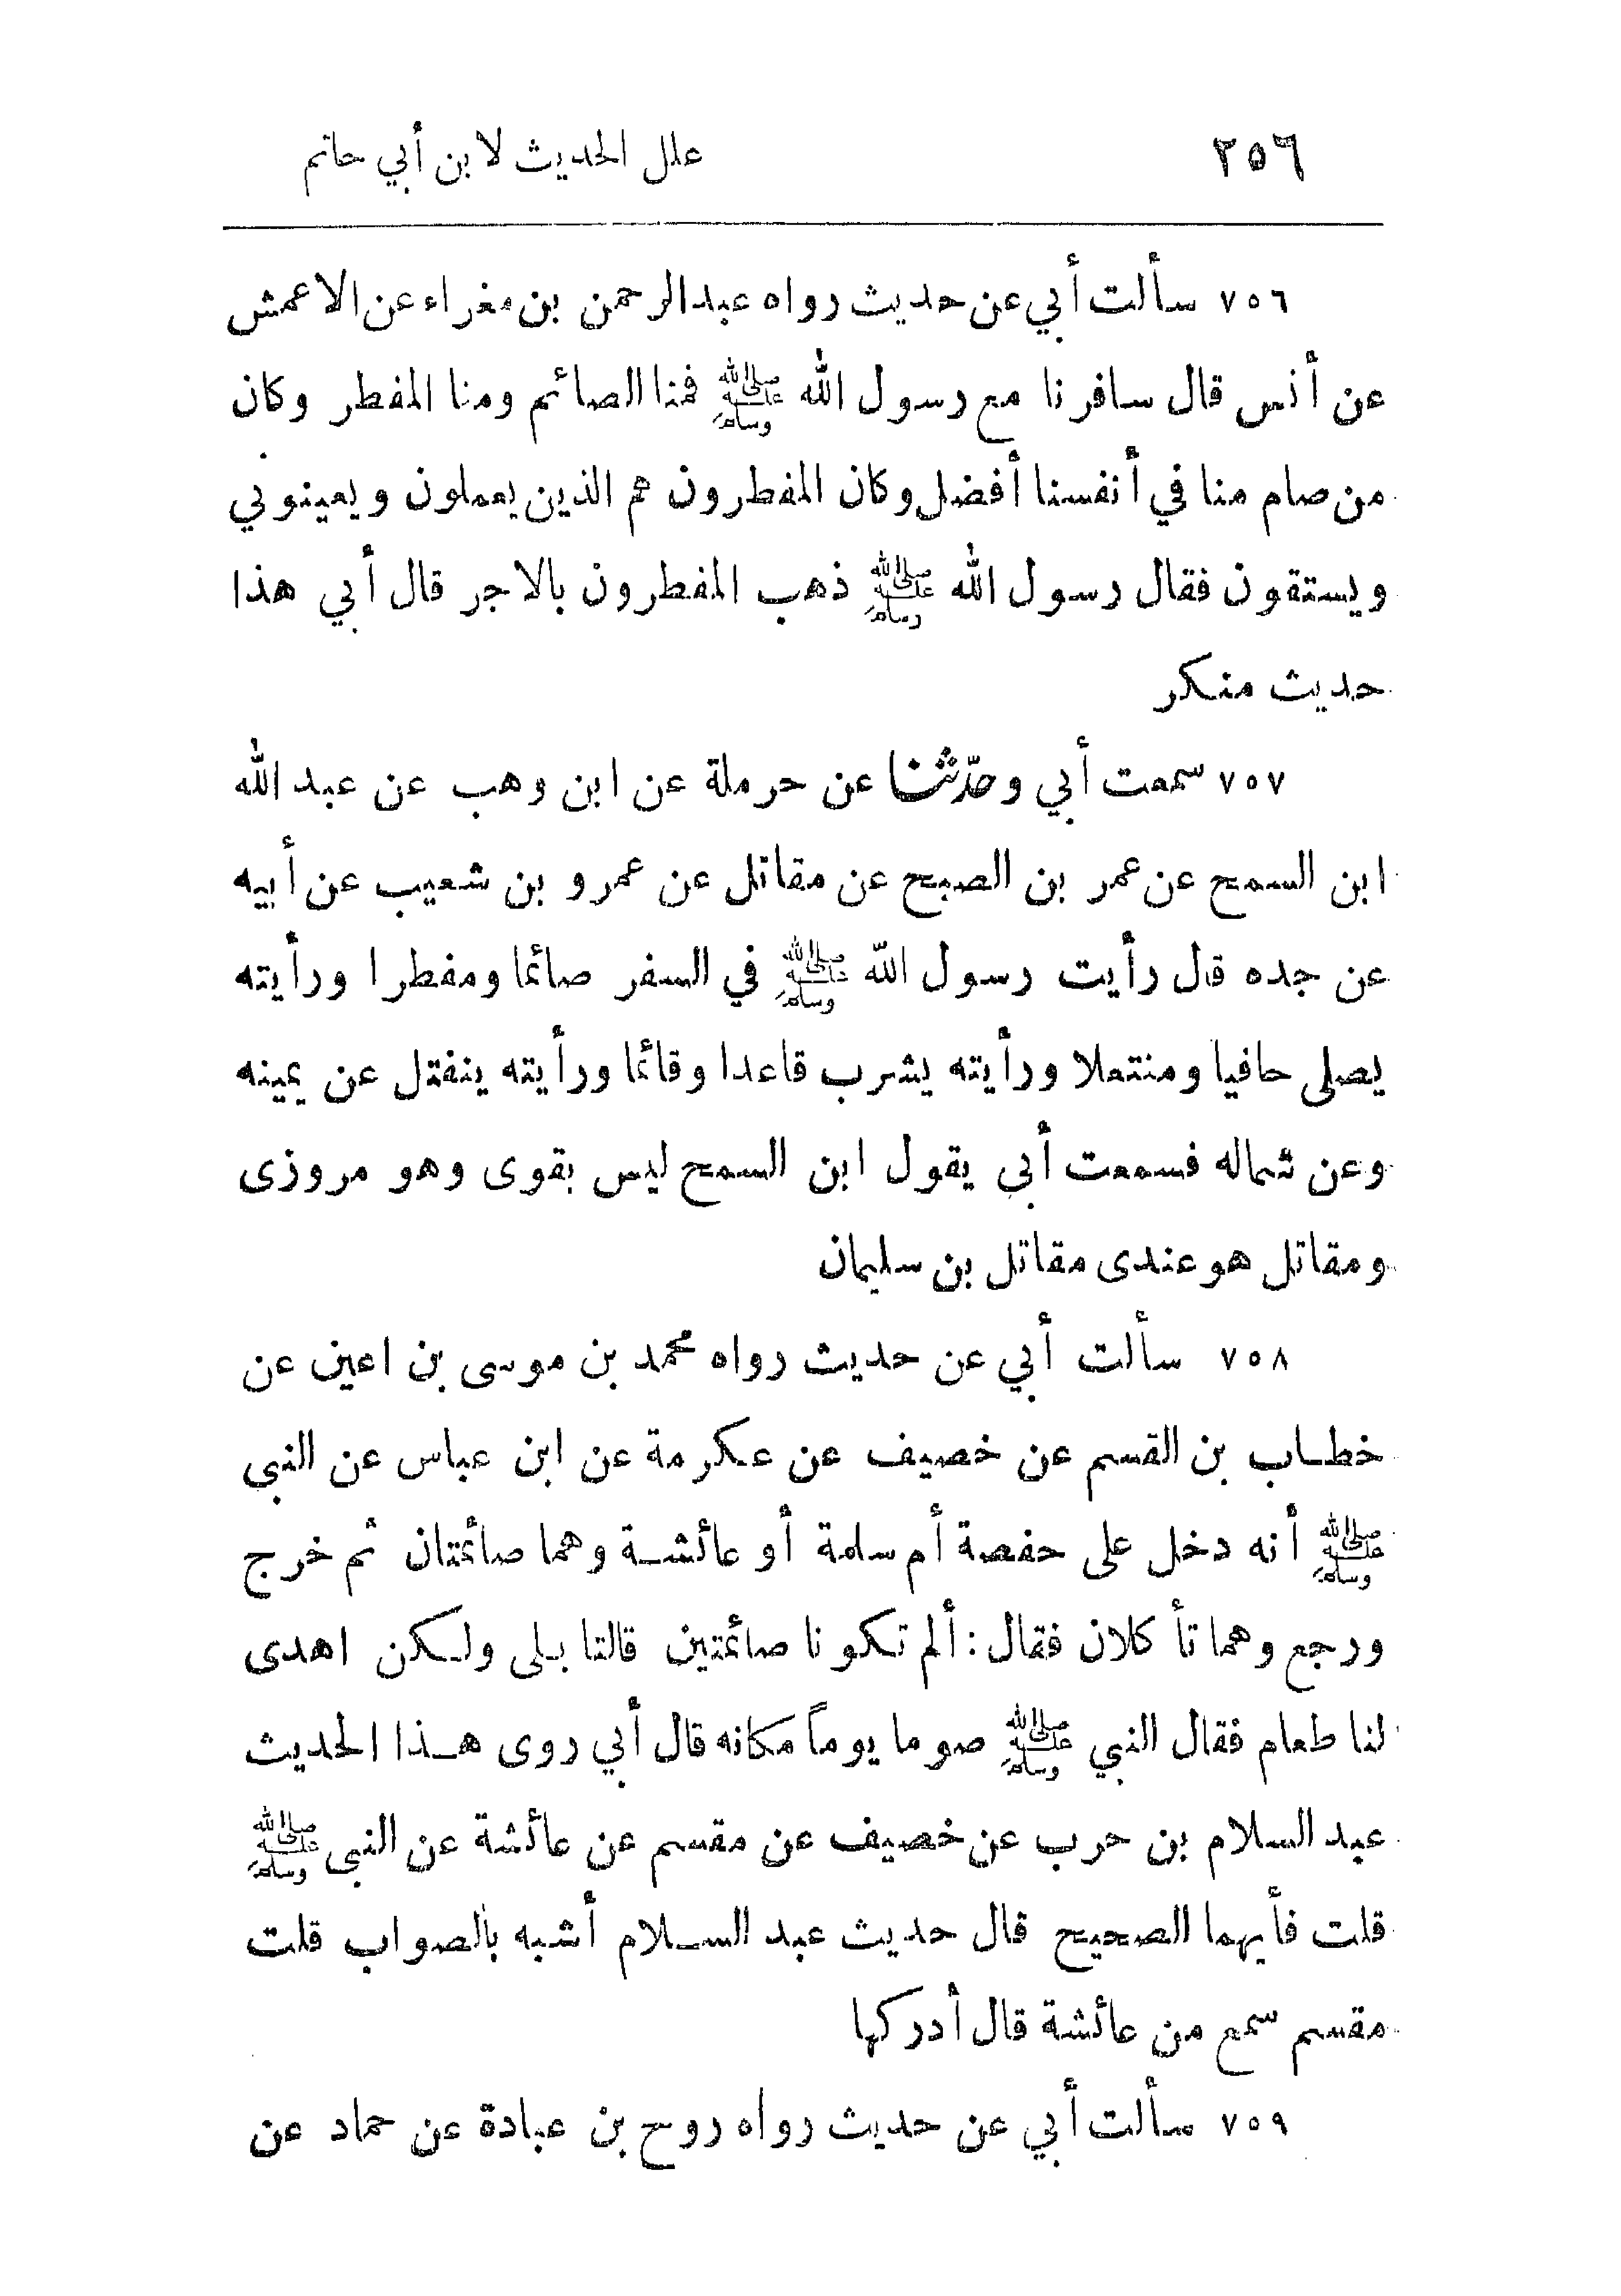 ٢٥٦ علل الحديث لابن أبي حاتم
٧٥٦ سألت أبي عن حديث رواه عبدالرحمن بن مغراء عن الاعمش
عن أنس قال سافرنا مع رسول الله ﷺ فمنا الصائم ومنا المفطر وكان
من صام منا في أنفسنا أفضل وكان المفطرون هم الذين يعملون ويعينوني
ويستقون فقال رسول الله ﷺ ذهب المفطرون بالاجر قال أبي هذا
حديث منكر
٧٥٧ سمعت أبي وحدّثنا عن حرملة عن ابن وهب عن عبد الله
ابن السمح عن عمر بن الصبح عن مقاتل عن عمرو بن شعيب عن أبيه
عن جده قال رأيت رسول الله ﷺ في السفر صائما ومفطرا ورأيته
يصلى حافيا ومنتعلا ورأيته يشرب قاعدا وقائما ورأيته ينفتل عن يمينه
وعن شماله فسمعت أبي يقول ابن السمح ليس بقوى وهو مروزى
ومقاتل هو عندى مقاتل بن سليمان
٧٥٨ سألت أبي عن حديث رواه محمد بن موسى بن اعين عن
خطاب بن القسم عن خصيف عن عكرمة عن ابن عباس عن النبي
ﷺ أنه دخل على حفصة أم سلمة أو عائشة وهما صائمتان ثم خرج
ورجع وهما تأكلان فقال: ألم تكونا صائمتين قالتا بلى ولكن اهدى
لنا طعام فقال النبي ﷺ صوما يوماً مكانه قال أبي روى هذا الحديث
عبد السلام بن حرب عن خصيف عن مقسم عن عائشة عن النبي ﷺ
قلت فأيهما الصحيح قال حديث عبد السلام أشبه بالصواب قلت
مقسم سمع من عائشة قال أدركها
٧٥٩ سألت أبي عن حديث رواه روح بن عبادة عن حماد عن